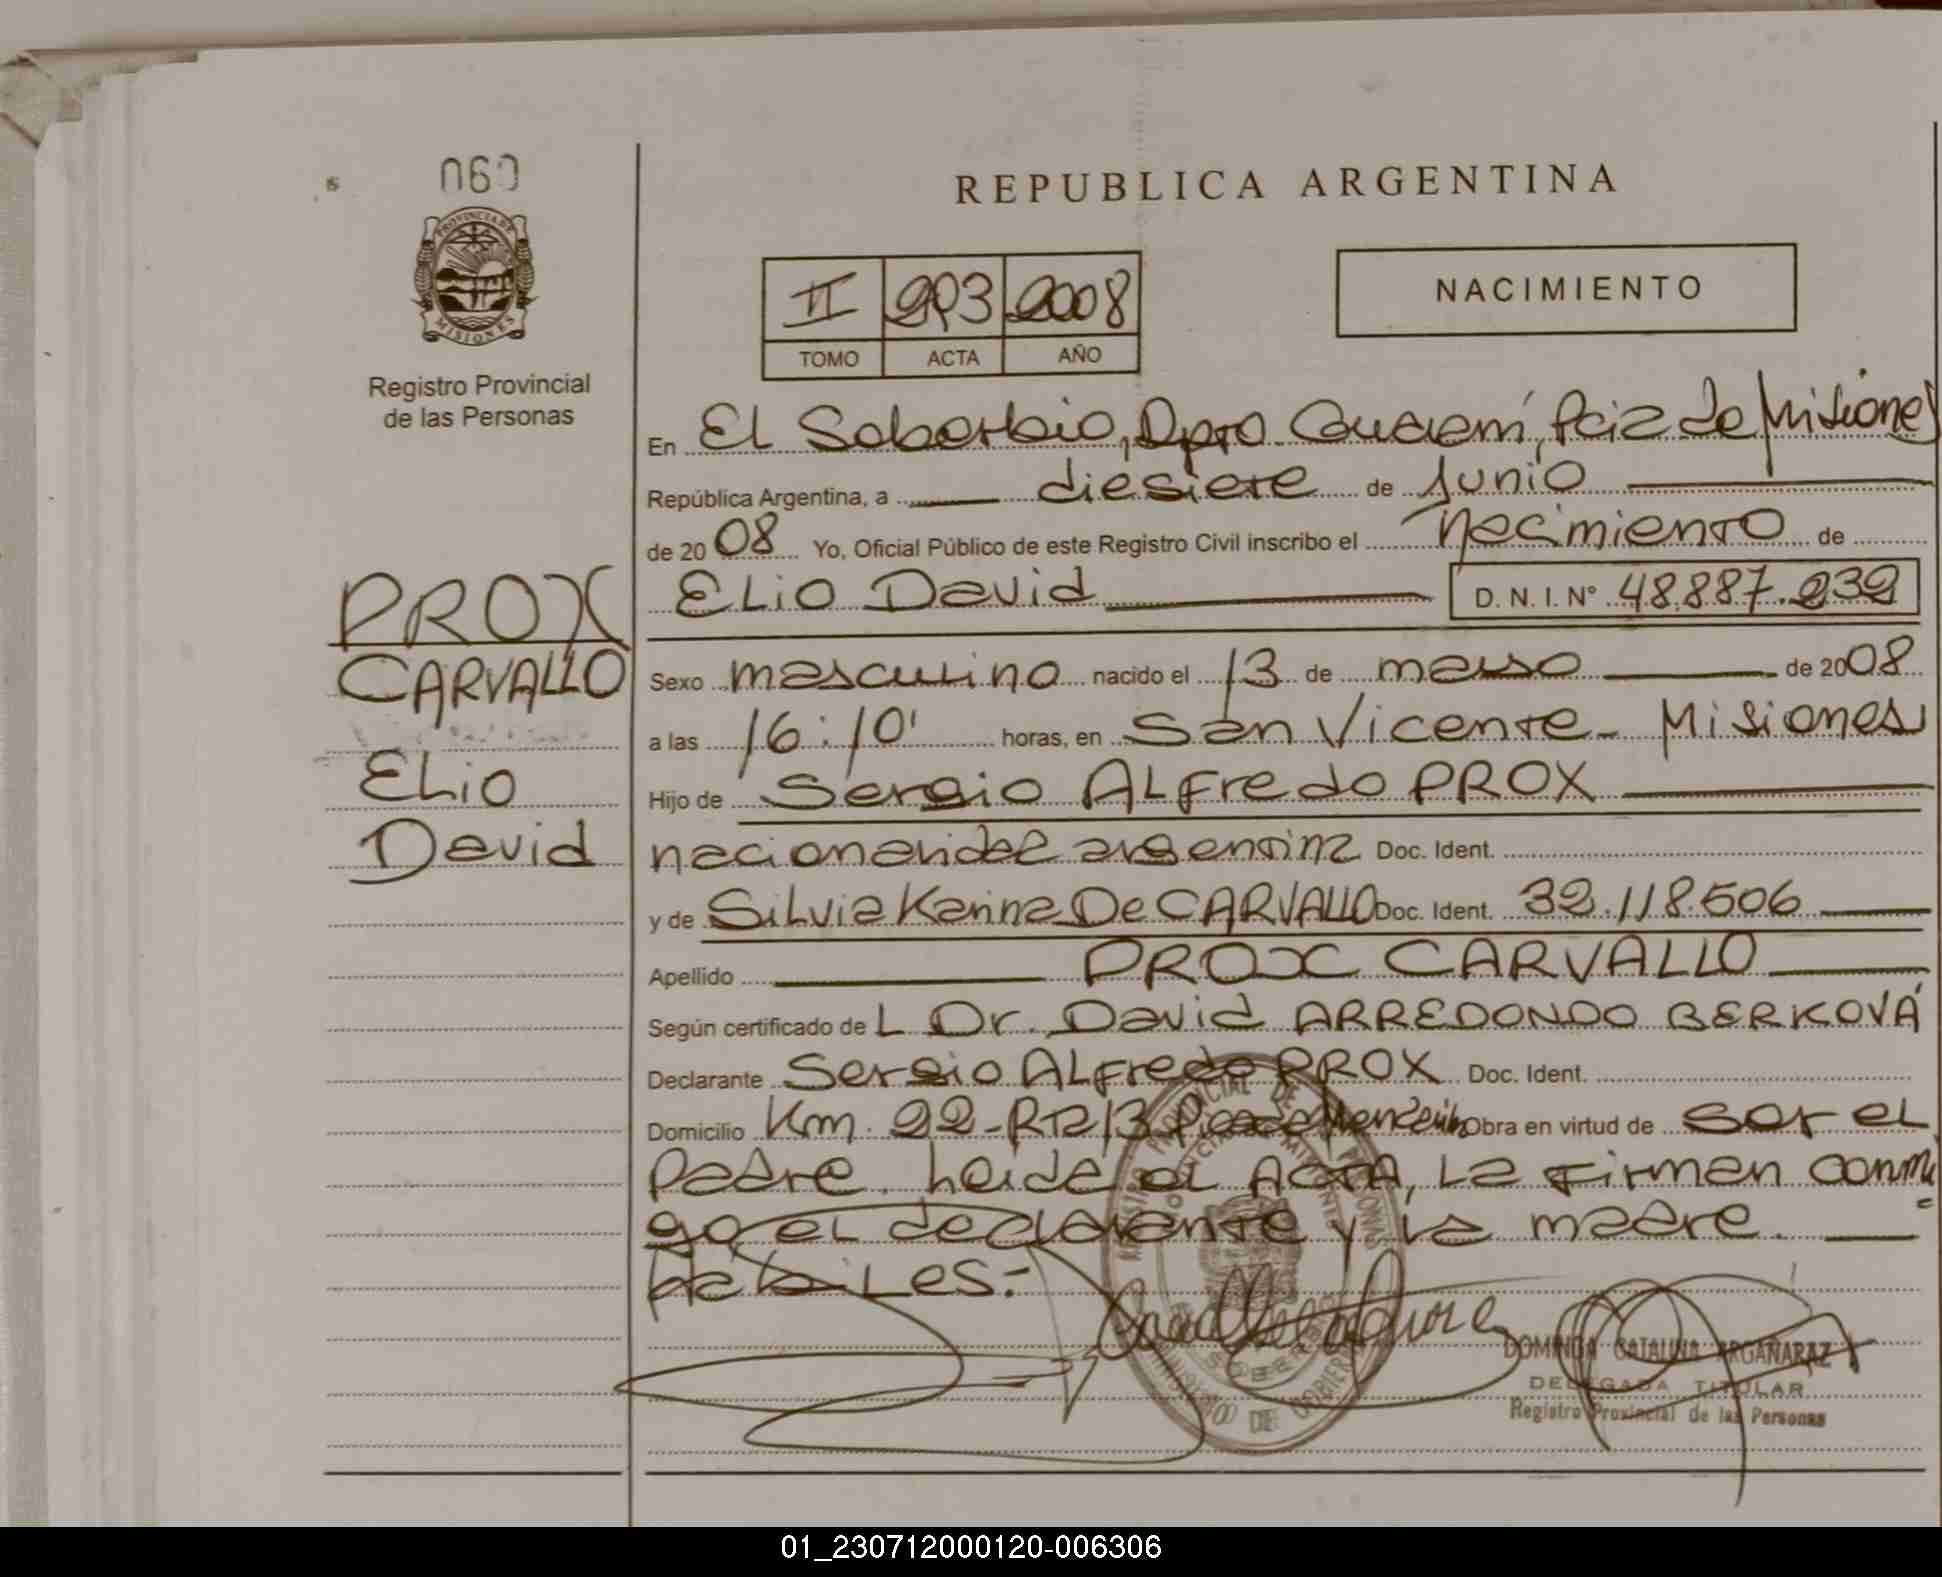 060
PROVINCIA DE
MISIONES
Registro Provincial
de las Personas
REPUBLICA ARGENTINA
II 293 2008
TOMO ACTA AÑO
NACIMIENTO
En El Soberbio, Dpto Guaraní, Pcia de Misiones
República Argentina, a diesiete de Junio
de 2008 Yo, Oficial Público de este Registro Civil inscribo el nacimiento de
ELio David D. N. I. N° 48.887.232
PROX
CARVALLO
ELio
David
Sexo masculino nacido el 13 de marso de 2008
a las 16:10' horas, en San Vicente - Misiones
Hijo de Sergio ALFredo PROX
nacionalidad argentina Doc. Ident.
y de SiLvia Karina De CARVALLO Doc. Ident. 32.118.506
Apellido PROX CARVALLO
Según certificado de L Dr. David ARREDONDO BERKOVA
Declarante Sergio ALFredo PROX Doc. Ident.
Domicilio Km. 22-RP13 Obra en virtud de Ser el
Padre. Leida el ACTA, La Firman conmi
go el declarante y la madre.
habiLes:-
DOMINGA CATALINA ARGAÑARAZ
DELEGADA TITULAR
Registro Provincial de las Personas
01_230712000120-006306